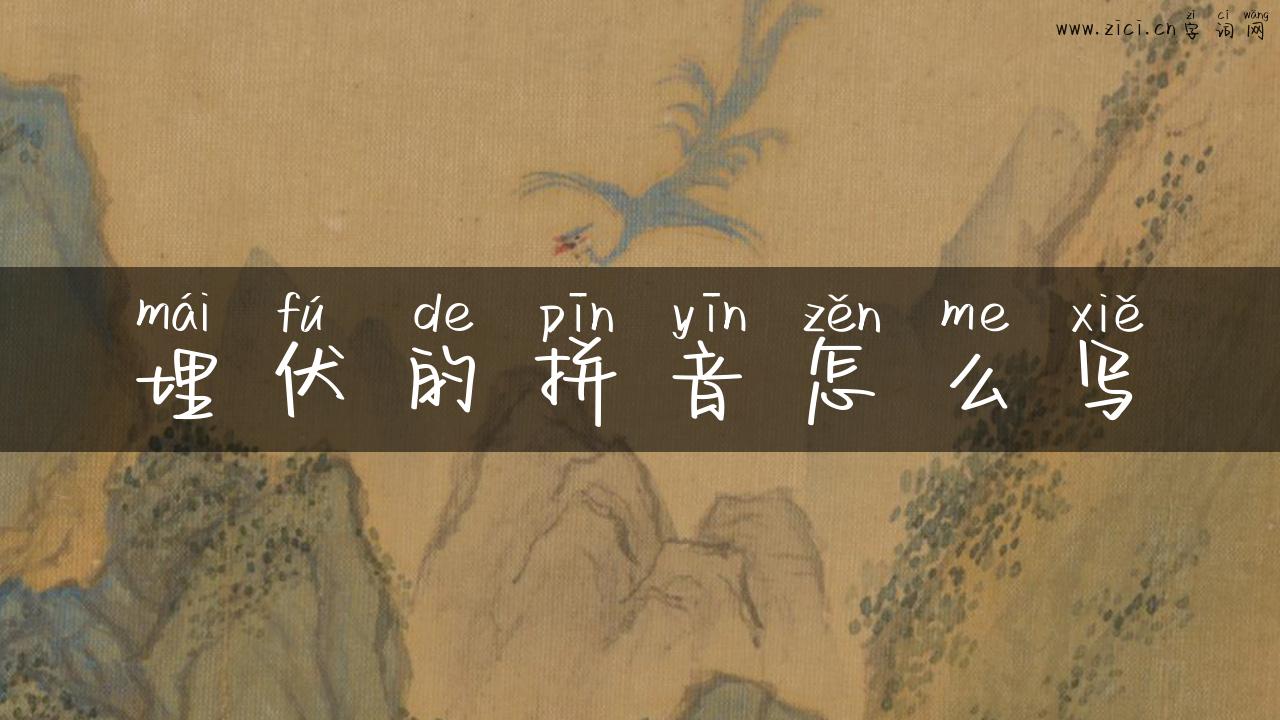 zì cí wǎng
www.zici.cn字词网
mái fú de pīn yīn zěn me xiě
埋伏的拼音怎么写